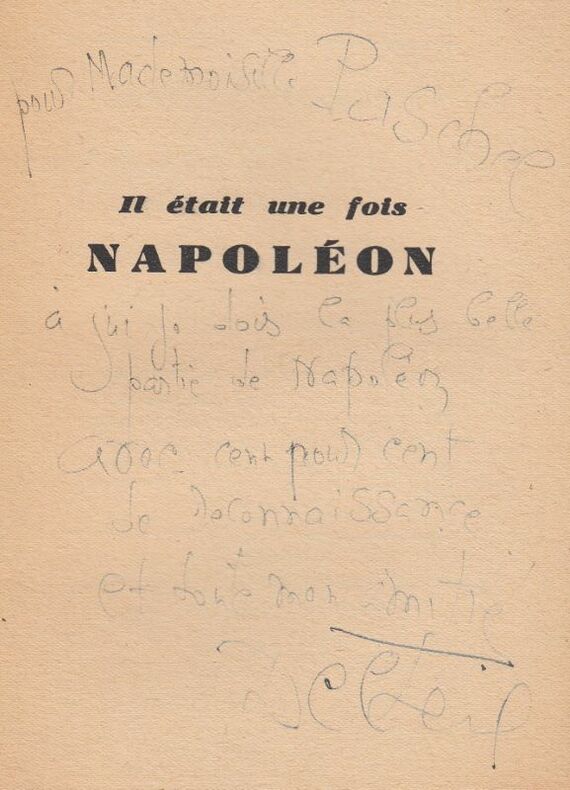 pour Mademoiselle
Il était une fois
NAPOLÉON
à qui je dois la plus belle
partie de Napoléon
avec cent pour cent
de reconnaissance
et toute mon amitié